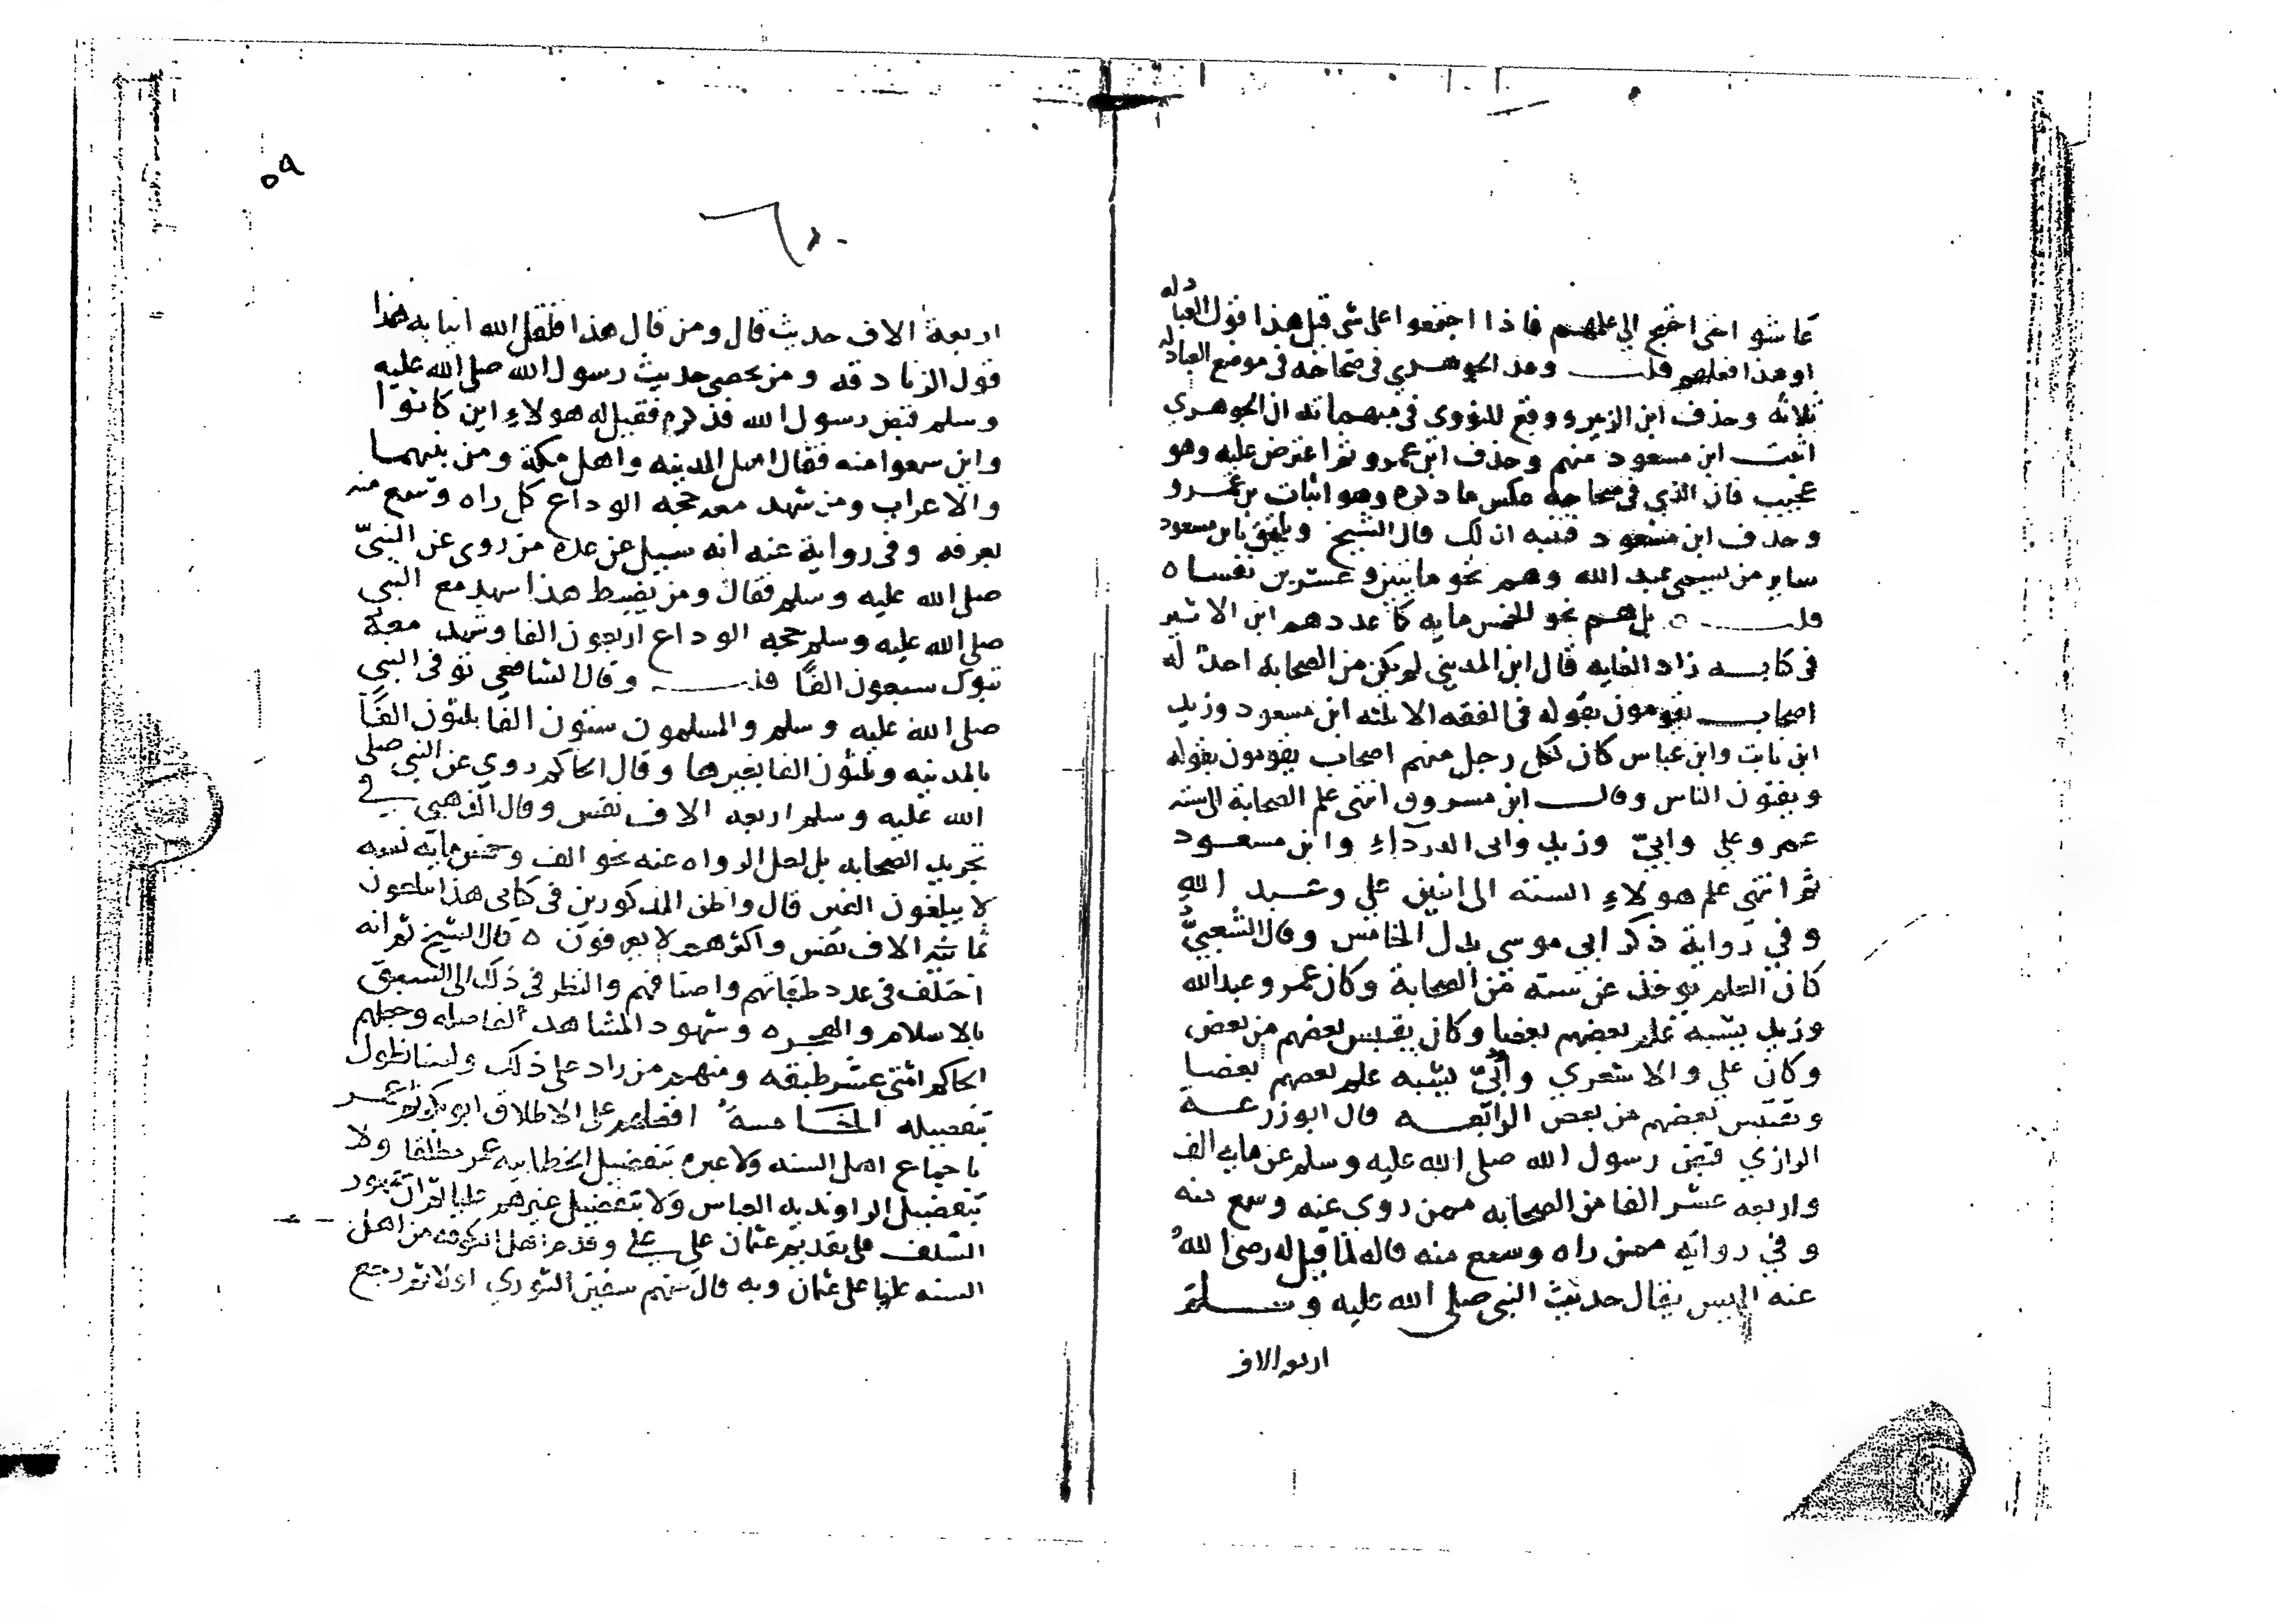 عاشوا حتى احتيج الى علمهم فاذا اجتمعوا على شي قيل هذا قول العبادله
او هذا فعلهم قلت وعد الجوهري في صحاحه في موضع العبادله
ثلاثه وحذف ابن الزبير ووقع للنووي في مبهماته ان الجوهري
اثبت ابن مسعود منهم وحذف ابن عمرو ثم اعترض عليه وهو
عجيب فان الذي في صحاحه عكس ما ذكره وهو اثبات بن عمرو
وحذف ابن مسعود فتنبه لذلك قال الشيخ ويلتحق بابن مسعود
ساير من يسمى عبد الله وهم نحو مايتين وعشرين نفسا ه
قلت بل هم نحو الخمس مايه كما عددهم ابن الاثير
في كتابه زاد الغايه قال ابن المديني لم يكن من الصحابة احد له
اصحاب يقومون بقوله في الفقه الا ثلثه ابن مسعود وزيد
ابن ثابت وابن عباس كان لكل رجل منهم اصحاب يقومون بقوله
ويفتون الناس وقال ابن مسروق انتهى علم الصحابة الى ستة
عمر وعلي وابيّ وزيد وابى الدرداء وابن مسعود
ثم انتهى علم هولاء الستة الى اثنين علي وعبد الله
وفي رواية ذكر ابي موسى بدل الخامس وقال الشعبيّ
كان العلم يوخذ عن ستة من الصحابة وكان عمر وعبد الله
وزيد يشبه علم بعضهم بعضا وكان يقتبس بعضهم من بعض
وكان علي والاشعري وأبيّ يشبه علم بعضهم بعضا
ويقتبس بعضهم من بعض الرابعه قال ابو زرعة
الرازي قبض رسول الله صلى الله عليه وسلم عن مايه الف
واربعه عشر الفا من الصحابه ممن روى عنه وسمع منه
وفي رواية ممن راه وسمع منه قاله لما قيل له رضى الله
عنه اليس يقال حديث النبي صلى الله عليه وسلم
اربعه الاف
٥٩
اربعة الاف حديث قال ومن قال هذا قلقل الله انيابه هذا
قول الزنادقه ومن يحصى حديث رسول الله صلى الله عليه
وسلم قبض رسول الله فذكره فقيل له هولاء اين كانوا
واين سمعوا منه فقال اهل المدينه واهل مكة ومن بينهما
والاعراب ومن شهد معه حجه الوداع كل راه وسمع منه
بعرفه وفي رواية عنه انه سيل عن عدة من روى عن النبيّ
صلى الله عليه وسلم فقال ومن يضبط هذا شهد مع النبي
صلى الله عليه وسلم حجه الوداع اربعون الفا وشهد معه
تبوك سبعون الفًا قلت وقال الشافعي توفى النبي
صلى الله عليه وسلم والمسلمون ستون الفا ثلثون الفًا
بالمدينه وثلثون الفا بغيرها وقال الحاكم روي عن النبي صلى
الله عليه وسلم اربعه الاف نفس وقال الذهبي في
تجريد الصحابه بل لعل الرواه عنه نحو الف وخمس مايه نسمه
لا يبلغون الفين قال واظن المذكورين في كتابى هذا يبلغون
ثمانيه الاف نفس واكثرهم لا يعرفون ه قال الشيخ ثم انه
اختلف في عدد طبقاتهم واصنافهم والنظر في ذلك الى السبق
بالاسلام والهجره وشهود المشاهد الفاضله وجعلهم
الحاكم اثنى عشر طبقه ومنهم من زاد على ذلك ولسنا نطول
بتفصيله الخامسة افضلهم على الاطلاق ابو بكر ثم عمر
باجماع اهل السنه ولا عبره بتفضيل الخطابيه عمر مطلقا ولا
بتفضيل الراونديه العباس ولا بتفضيل غيرهم عليا
السلف على تقديم عثمان على علي وقدم اهل الكوفه من اهل
السنه عليا على عثمان وبه قال منهم سفين الثوري اولا ثم رجع